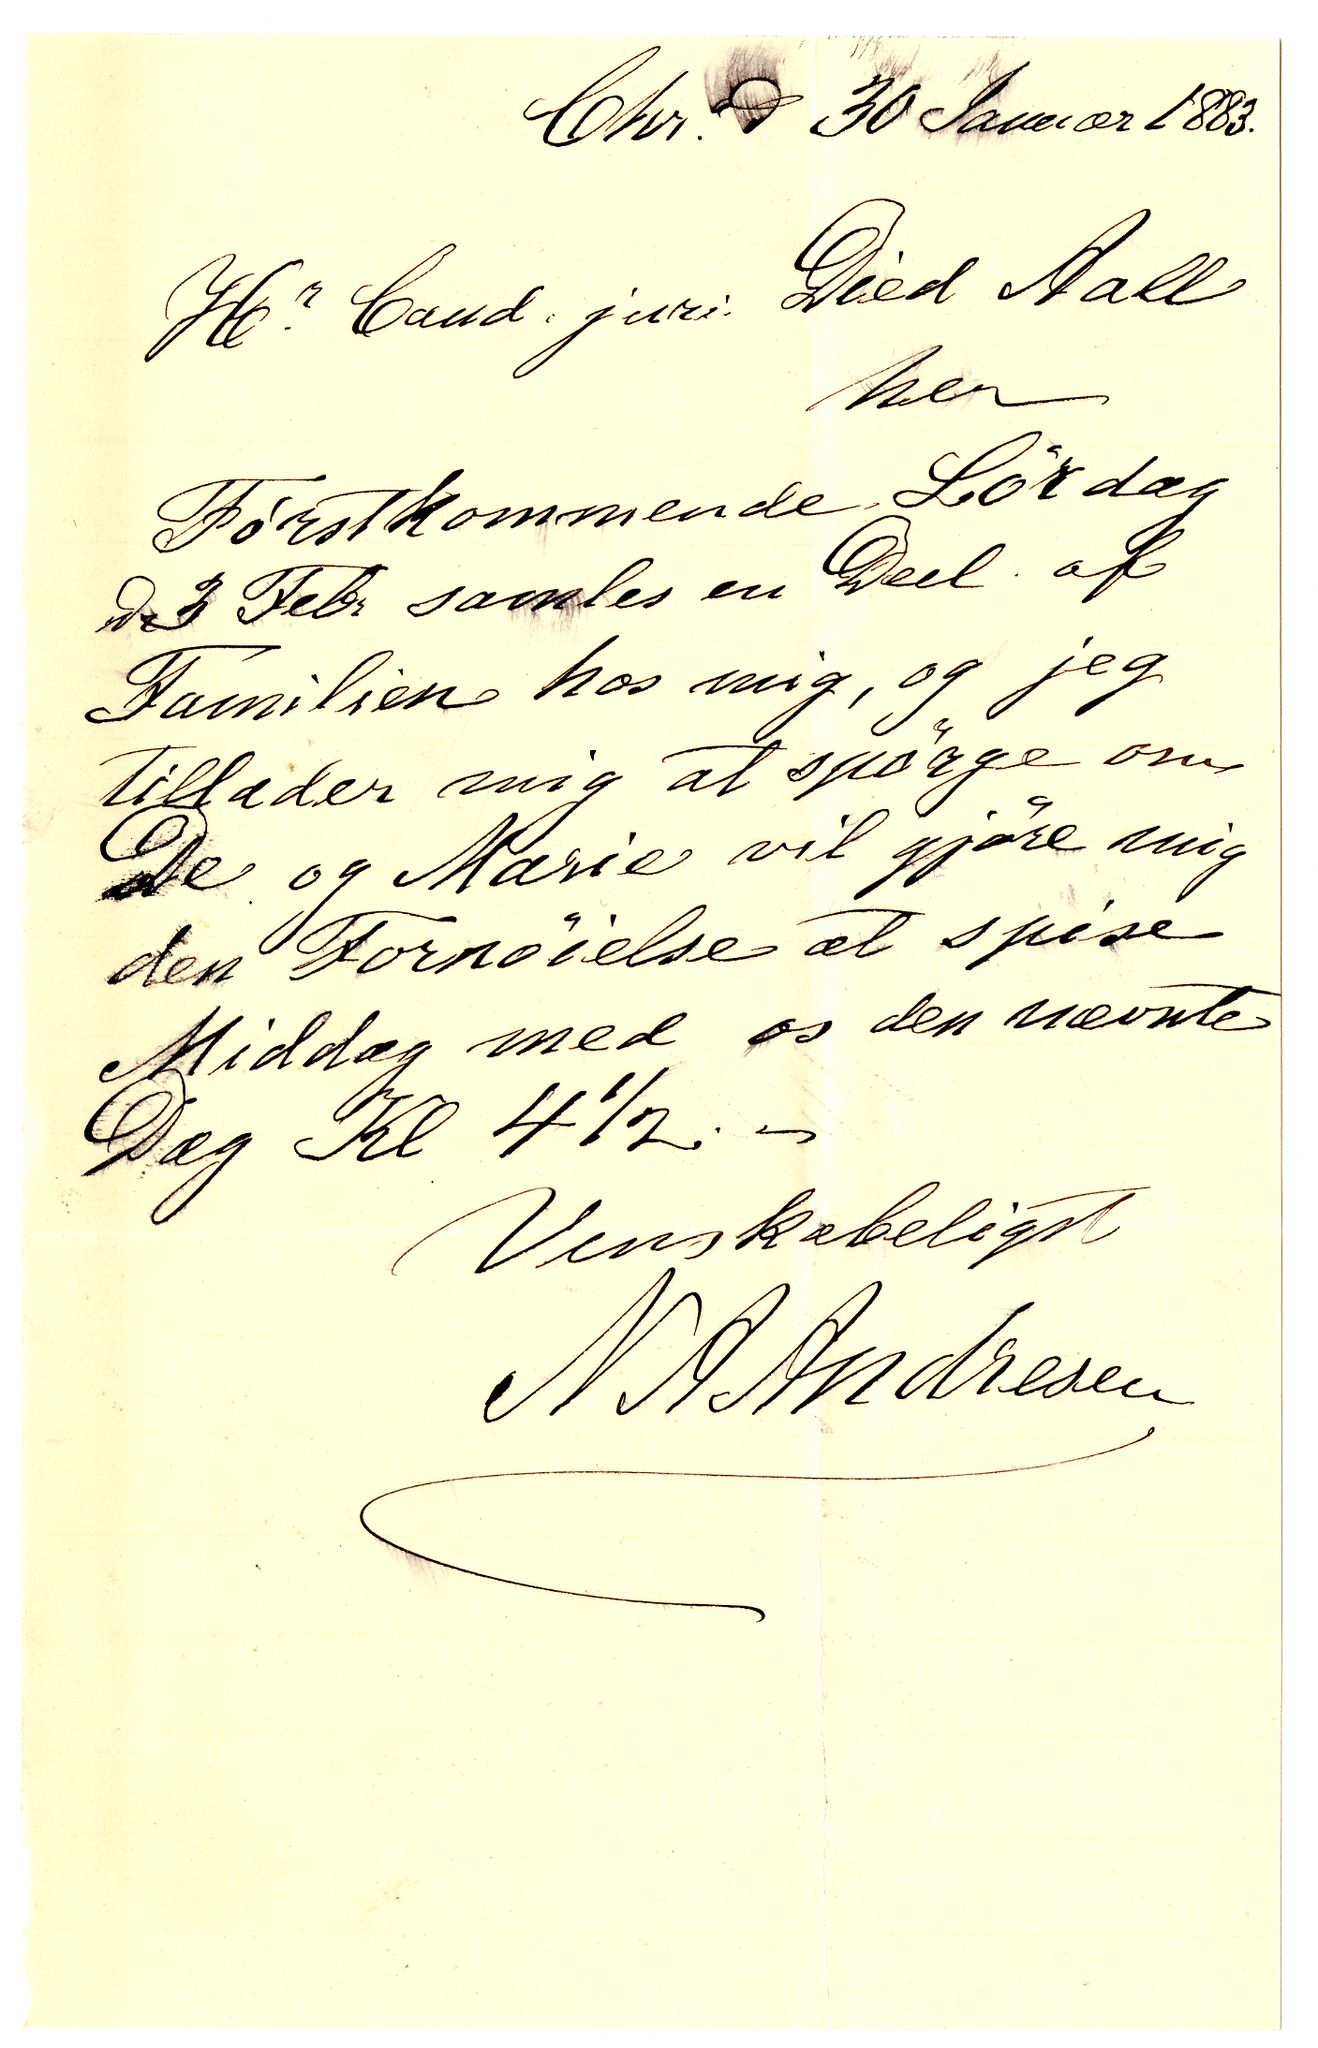 Chr.a d 30 Januar 1883.
Hr. Cand. juri. Died Aall
her
Förstkommende Lördag
d 3 Febr samles en Deel af
Familien hos mig, og jeg
tillader mig at spörge om
De og Marie vil gjöre mig
den Fornöielse at spise
Middag med os den nævnte
Dag Kl 4 1/2. –
Venskabeligst
N A Andresen